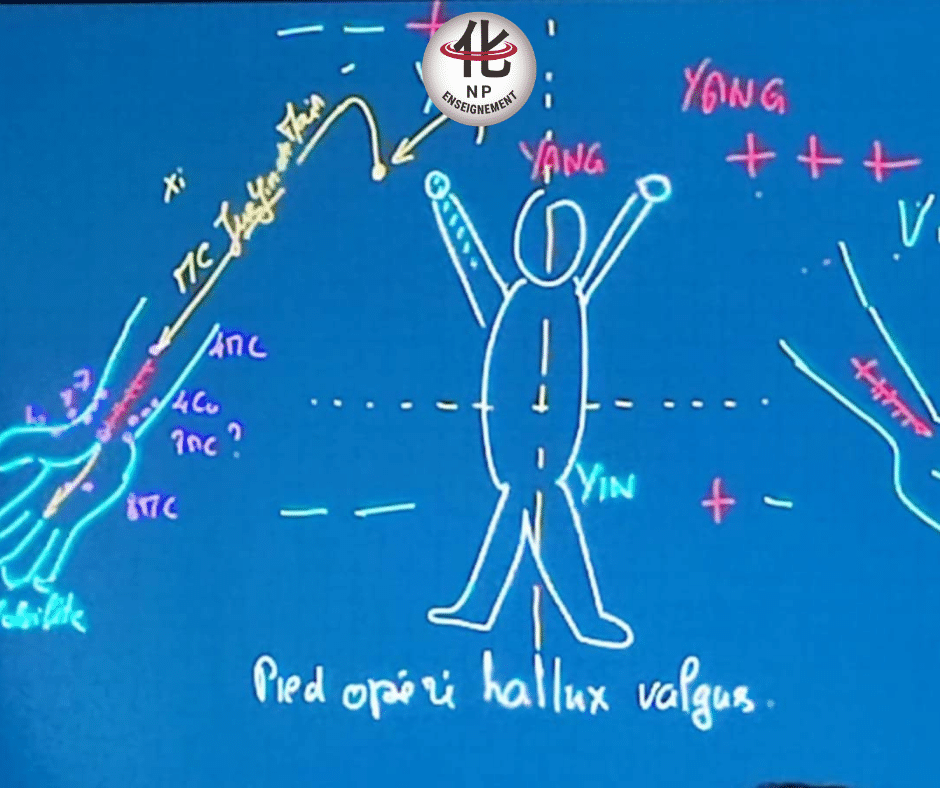 化
NP
ENSEIGNEMENT
YANG
+ + +
YANG
xi
MC Jue Yin
4MC
7
4Co
7MC ?
8MC
YIN
+ -
- -
Pied opéré hallux valgus.